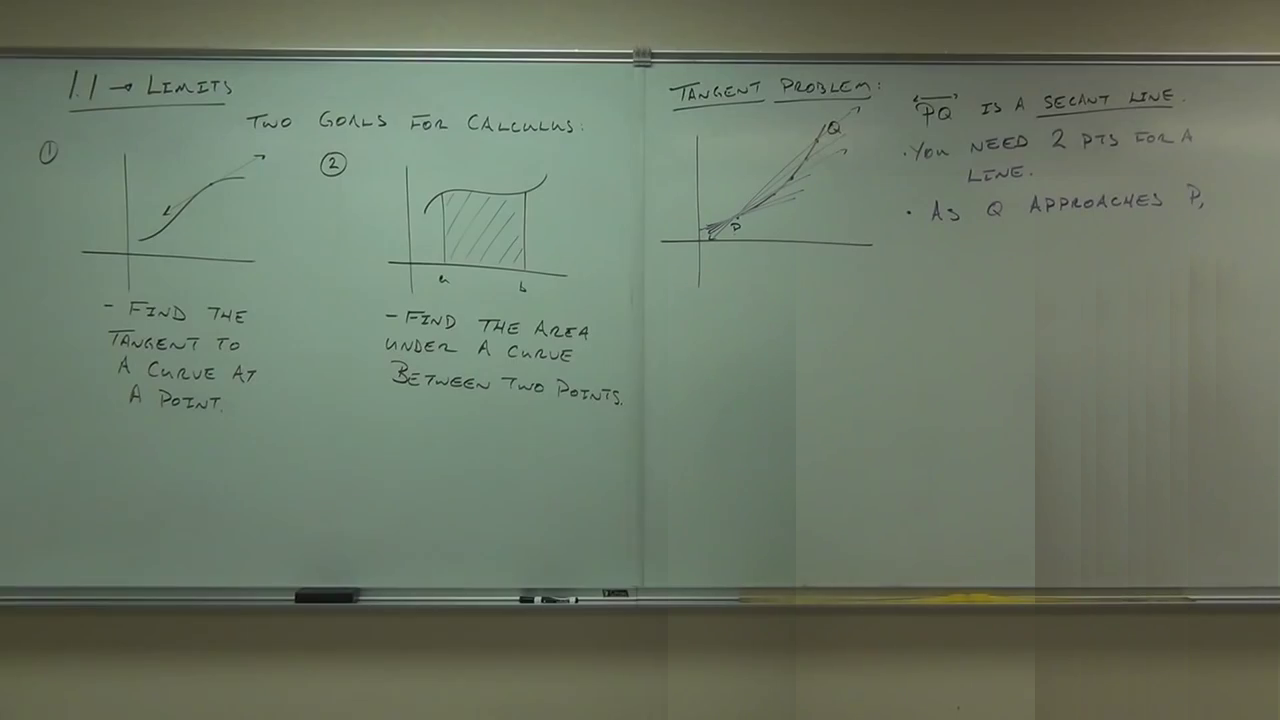 1.1 → LIMITS
TWO GOALS FOR CALCULUS:
①
②
a
b
- FIND THE
TANGENT TO
A CURVE AT
A POINT.
- FIND THE AREA
UNDER A CURVE
BETWEEN TWO POINTS.
TANGENT PROBLEM:
Q
P
PQ IS A SECANT LINE.
• YOU NEED 2 PTS FOR A
LINE.
• AS Q APPROACHES P,